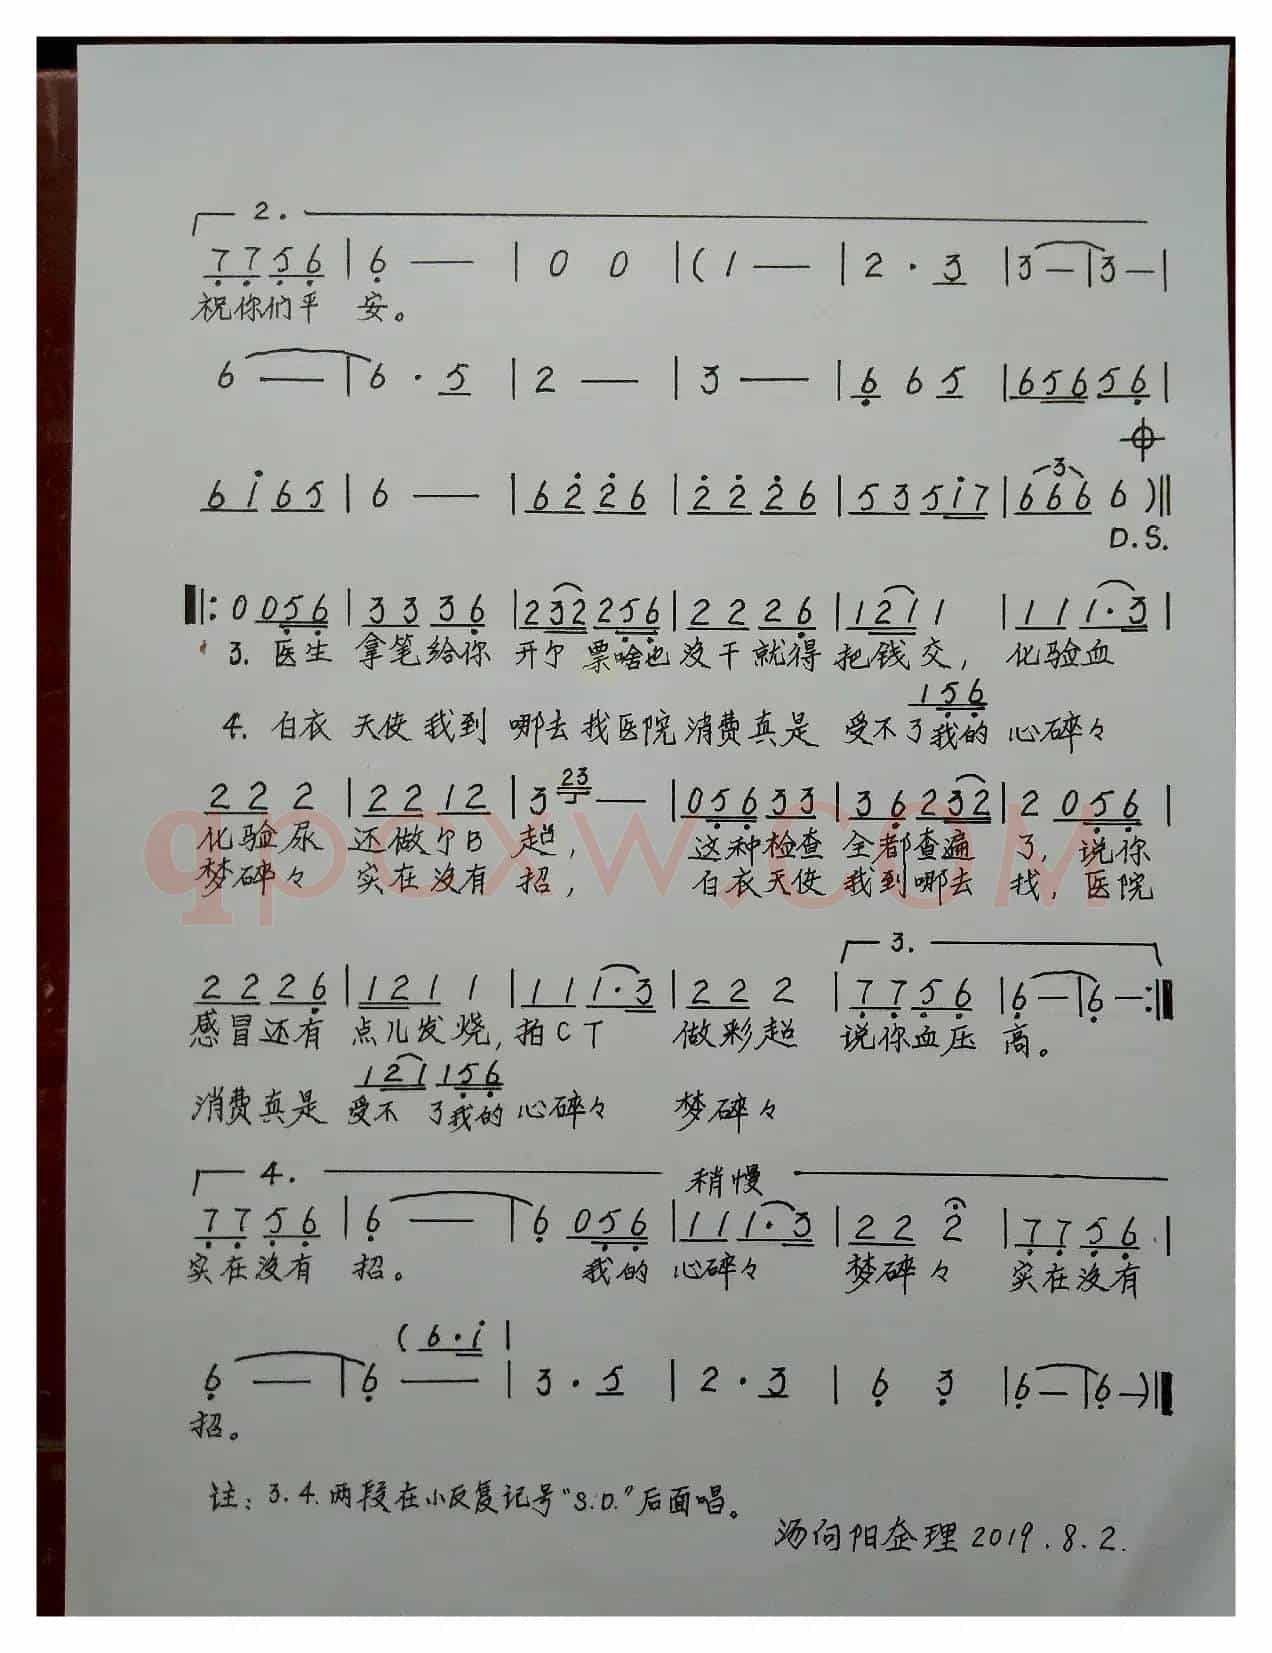 2.
7 7 5 6 | 6 — | 0 0 | ( 1 — | 2 · 3 | 3 — | 3 — |
祝你们平 安。
6 — | 6 · 5 | 2 — | 3 — | 6 6 5 | 6 5 6 5 6 |
6 i 6 5 | 6 — | 6 2 2 6 | 2 2 2 6 | 5 3 5 i 7 | 6 6 6 6 ) ‖
3
D.S.
‖: 0 0 5 6 | 3 3 3 6 | 2 3 2 2 5 6 | 2 2 2 6 | 1 2 1 1 | 1 1 1 · 3 |
3. 医生 拿笔给你 开个 票啥也 没干就得 把钱交, 化验血
1 5 6
4. 白衣 天使我到 哪去找医院 消费真是 受不了我的 心碎々
2 2 2 | 2 2 1 2 | 3 23 — | 0 5 6 3 3 | 3 6 2 3 2 | 2 0 5 6 |
化验尿 还做个B 超, 这种检查 全都查遍 了, 说你
梦碎々 实在没有 招, 白衣天使 我到哪去 找, 医院
3.
2 2 2 6 | 1 2 1 1 | 1 1 1 · 3 | 2 2 2 | 7 7 5 6 | 6 — | 6 — :‖
感冒还有 点儿发烧, 拍CT 做彩超 说你血压 高。
1 2 1 1 5 6
消费真是 受不 了我的 心碎々 梦碎々
4. 稍慢
7 7 5 6 | 6 — | 6 0 5 6 | 1 1 1 · 3 | 2 2 2 | 7 7 5 6 |
实在没有 招。 我的 心碎々 梦碎々 实在没有
( 6 · i |
6 — | 6 — | 3 · 5 | 2 · 3 | 6 3 | 6 — | 6 — ) ‖
招。
注: 3.4.两段在小反复记号“S.D.”后面唱。
汤向阳整理 2019.8.2.
qpcxw.com